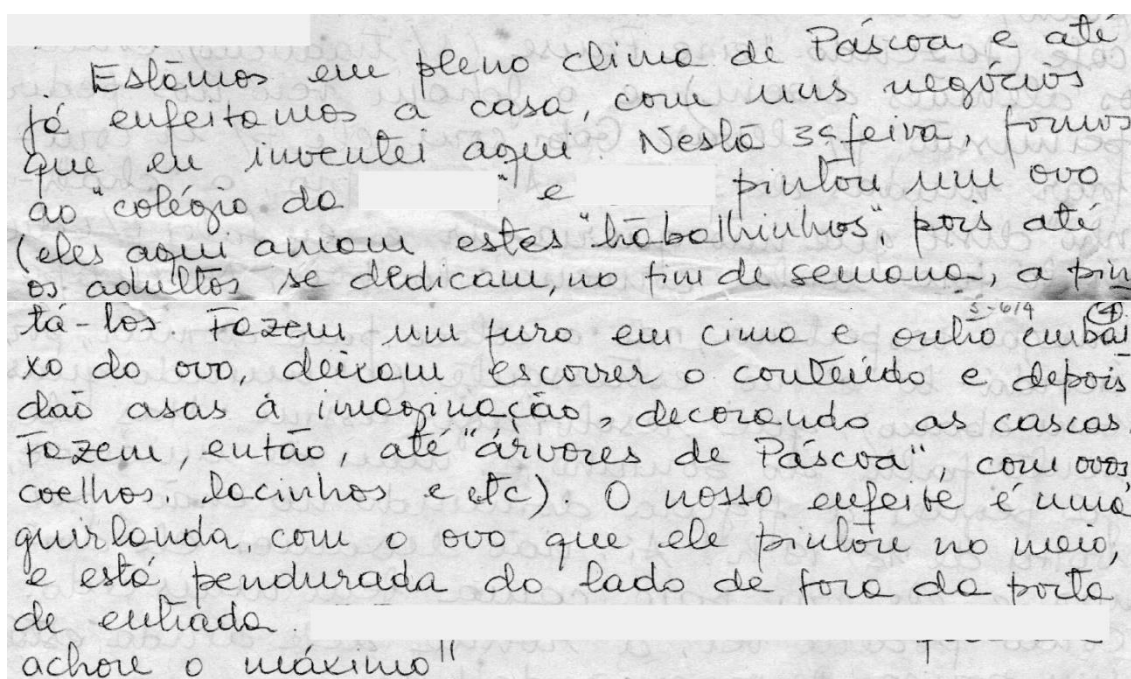 Estâmos em pleno clima de Páscoa, e até
já enfeitamos a casa, com uns negócios
que eu inventei aqui. Nesta 3ª feira, fomos
ao "colégio da " e pintou um ovo
(eles aqui amam estes "trabalhinhos", pois até
os adultos se dedicam, no fim de semana, a pin
5-6/4 4
tá-los. Fazem um furo em cima e outro embai
xo do ovo, deixam escorrer o conteúdo e depois
dão asas à imaginação, decorando as cascas.
Fazem, então, até "árvores de Páscoa", com ovos
coelhos, lacinhos e etc). O nosso enfeite é uma
guirlanda, com o ovo que ele pintou no meio,
e está pendurada do lado de fora da porta
de entrada.
achou o máximo!!